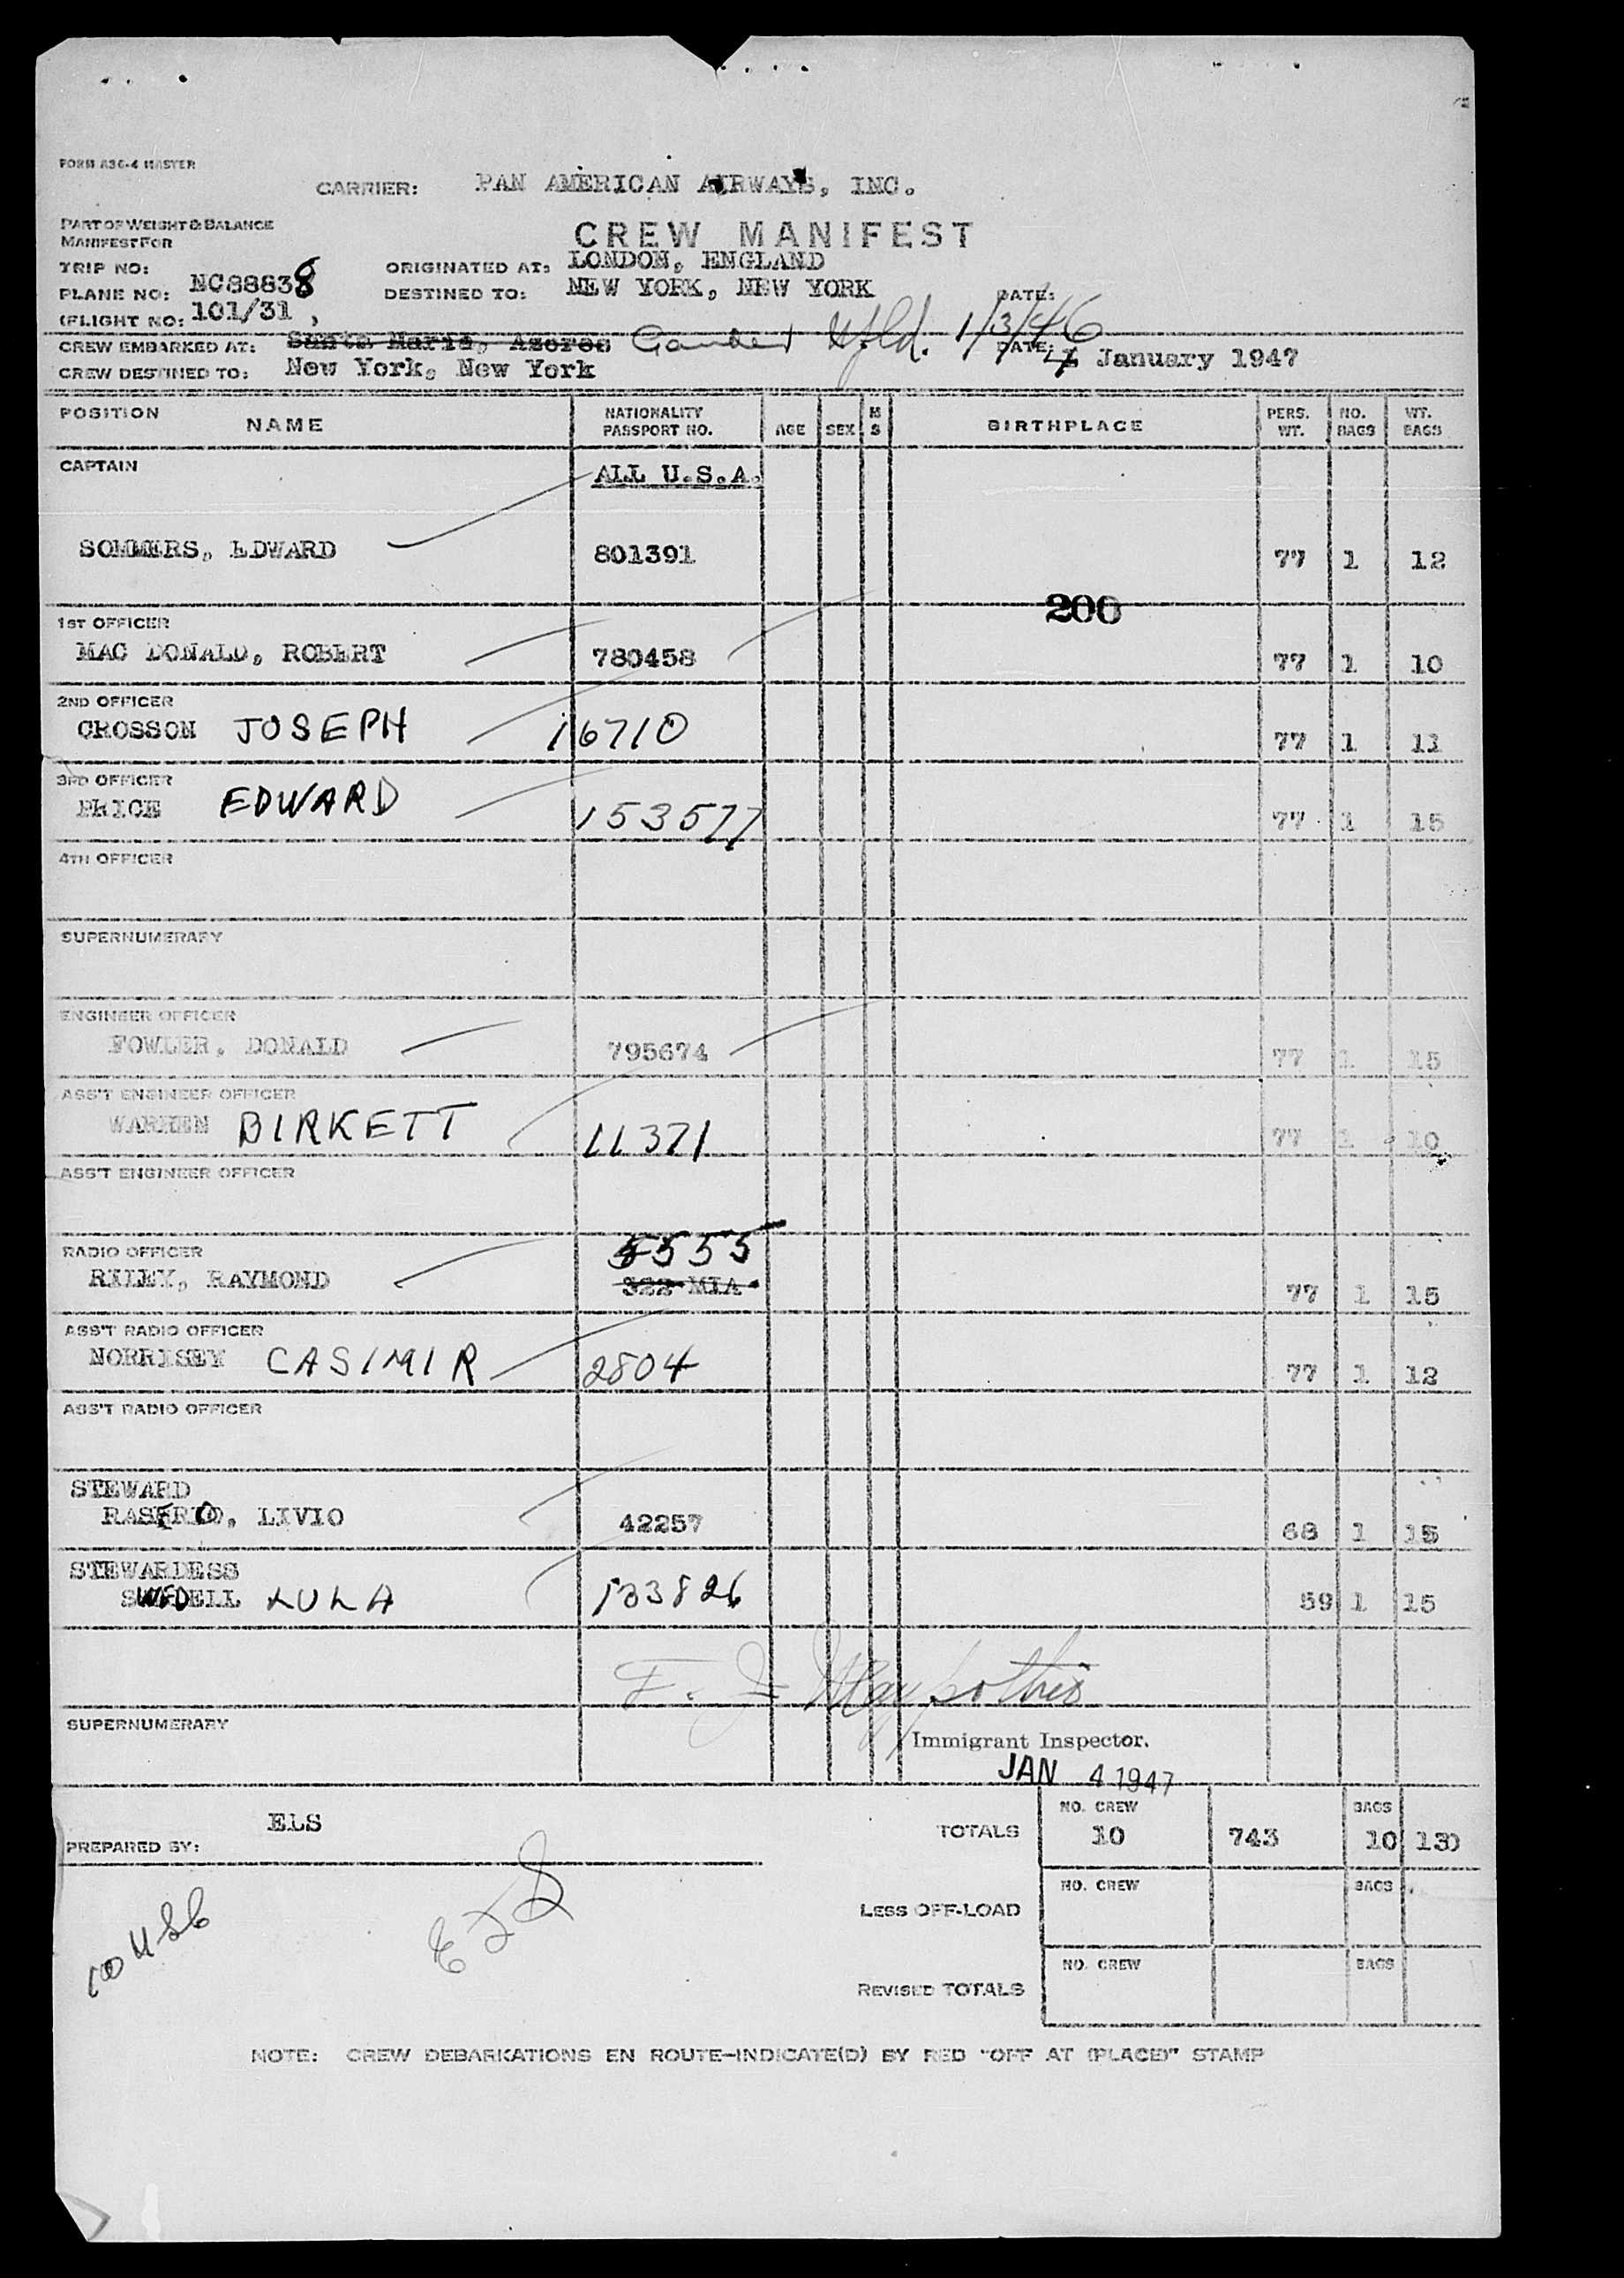 FORM A36-4 MASTER
CARRIER: PAN AMERICAN AIRWAYS, INC.
PART OF WEIGHT & BALANCE
MANIFEST FOR
CREW MANIFEST
TRIP NO:
ORIGINATED AT: LONDON, ENGLAND
PLANE NO: NC88838
DESTINED TO: NEW YORK, NEW YORK
DATE:
(FLIGHT NO: 101/31 ,
CREW EMBARKED AT: Santa Maria, Azores Gander Nfld. 1/3/46
DATE: 4 January 1947
CREW DESTINED TO: New York, New York
POSITION NAME NATIONALITY PASSPORT NO. AGE SEX M S BIRTHPLACE PERS. WT. NO. BAGS WT. BAGS
CAPTAIN ALL U.S.A.
SOMMERS, EDWARD 801391 77 1 12
200
1ST OFFICER
MAC DONALD, ROBERT 780458 77 1 10
2ND OFFICER
CROSSON JOSEPH 16710 77 1 11
3RD OFFICER
PRICE EDWARD 153577 77 1 15
4TH OFFICER
SUPERNUMERARY
ENGINEER OFFICER
FOWLER, DONALD 795674 77 1 15
ASS'T ENGINEER OFFICER
WARREN BIRKETT 11371 77 1 10
ASS'T ENGINEER OFFICER
RADIO OFFICER 5555
RILEY, RAYMOND 322 MIA 77 1 15
ASS'T RADIO OFFICER
NORRISEY CASIMIR 2804 77 1 12
ASS'T RADIO OFFICER
STEWARD
RASERO, LIVIO 42257 68 1 15
STEWARDESS
SWEDELL LULA 133826 59 1 15
F. J.
SUPERNUMERARY
Immigrant Inspector.
JAN 4 1947
ELS
PREPARED BY:
TOTALS NO. CREW 10 743 BAGS 10 130
LESS OFF-LOAD NO. CREW BAGS
REVISED TOTALS NO. CREW BAGS
NOTE: CREW DEBARKATIONS EN ROUTE-INDICATE(D) BY RED "OFF AT (PLACE)" STAMP